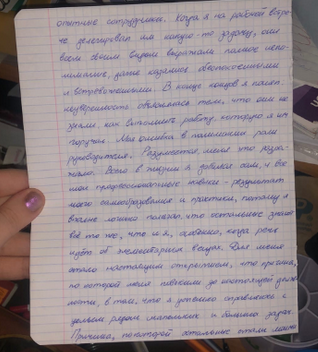 опытные сотрудники. Когда я на рабочей встре-
че делегировал им какую-то задачу, они
всем своим видом выражали полное непо-
нимание, даже казались обеспокоенными
и встревоженными. В конце концов я понял.
неуверенность объяснялась тем, что они не
знали, как выполнить работу, которую я им
поручил. Моя ошибка в понимании роли
руководителя. Разумеется, меня это пора-
зило. Всего в жизни я добился сам, и все
мои профессиональные навыки - результат
моего самообразования и практики, поэтому я
вполне логично полагал, что остальные знают
всё то же, что и я, особенно, когда речь
идёт об элементарных вещах. Для меня
стало настоящим открытием, что причина,
по которой меня повысили до настоящей долж-
ности, в том, что я успешно справлялся с
целым рядом маленьких и больших задач.
Причина, по которой остальные стали моими